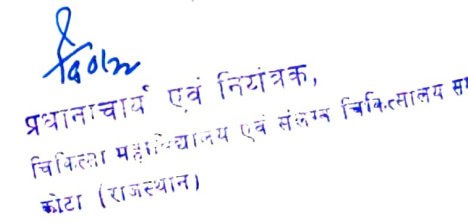 प्रधानाचार्य एवं नियंत्रक,
चिकित्सा महाविद्यालय एवं संलग्न चिकित्सालय
कोटा (राजस्थान)